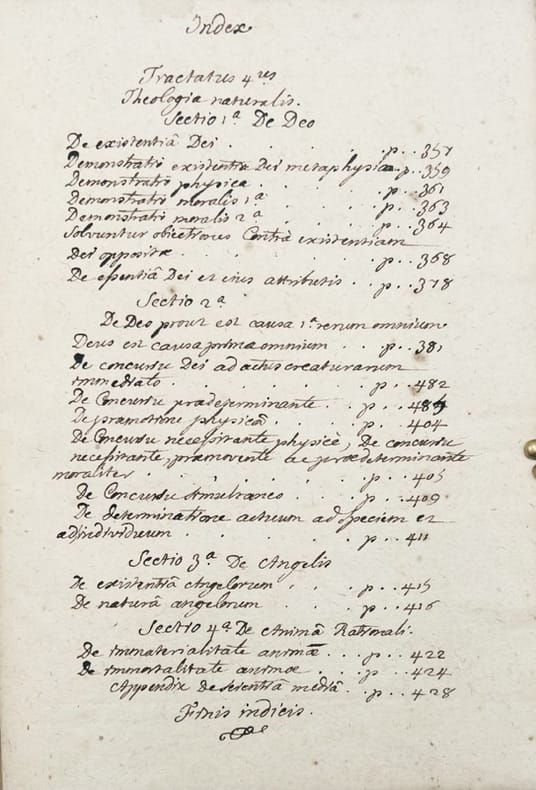 Index
Tractatus 4us
Theologia naturalis.
Sectio 1a De Deo
De existentiâ Dei . . . . p . . 357
Demonstratio existentiæ Dei metaphysica . p . . 359
Demonstratio physica . . . . p . . 361
Demonstratio moralis 1a . . . p . . 363
Demonstratio moralis 2a . . . p . . 364
Solvuntur obiectiones Contrà existentiam
Dei oppositæ . . . . p . . 368
De essentiâ Dei et eius attributis . . p . . 378
Sectio 2a
De Deo prout est causa 1a rerum omnium
Deus est causa prima omnium . . . p . . 381
De concursu Dei ad actus creaturarum
immediato . . . . . p . . 482
De Concursu prædeterminante . . p . .
De præmotione physicâ . . . . p . . 404
De Concursu necessitante physicè, De concursu
necessitante, præmovente ac prædeterminante
moraliter . . . . . p . . 405
De Concursu simultaneo . . . p . . 409
De determinatione actuum ad speciem et
ad individuum . . . . . p . . 411
Sectio 3a De Angelis
De existentiâ Angelorum . . . p . . 415
De naturâ angelorum . . . p . . 416
Sectio 4a De Animâ Rationali.
De immaterialitate animæ . . . p . . 422
De immortalitate animæ . . . p . . 424
Appendix de scientiâ mediâ . . p . . 428
Finis indicis.